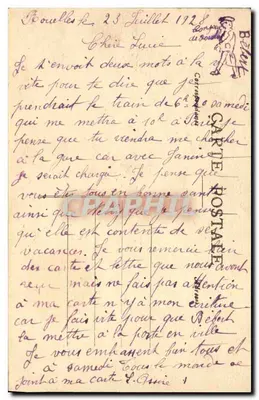 Bouelles le 23 Juillet 1928
Chère Lucie
Je t'envoit deux mots à la
vite pour te dire que je
prendrait le train de 6h samedi
qui me mettre à 10h à Paris je
pense que tu viendra me chercher
à la gare car avec Janine
je serait chargé. Je pense que
vous êtes tous en bonne santé
ainsi que
qu'elle est contente de ses
vacances. Je vous remercie bien
des carte et lettre que nous avont
reçu mais ne fais pas attention
à ma carte n'y à mon écriture
car je fais vite pour que Bébert
la mettre à la poste en ville
Je vous embrassent bien tous et
à samedi tous le monde se
joint à ma carte
CARTE POSTALE
Correspondance
Bébert